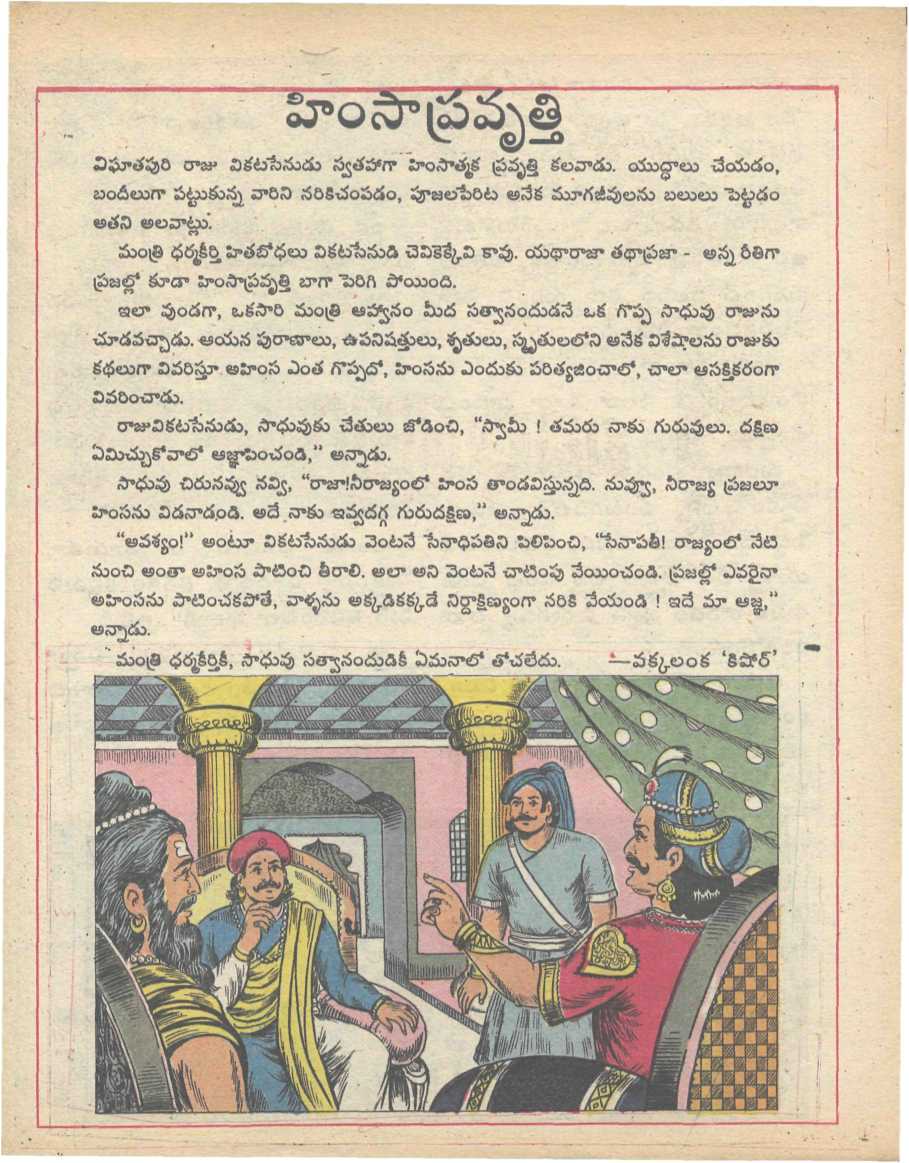 హింసాప్రవృత్తి
విఘాతపురి రాజు వికటసేనుడు స్వతహాగా హింసాత్మక ప్రవృత్తి కలవాడు. యుద్ధాలు చేయడం,
బందీలుగా పట్టుకున్న వారిని నరికిచంపడం, పూజలపేరిట అనేక మూగజీవులను బలులు పెట్టడం
అతని అలవాట్లు.
మంత్రి ధర్మకీర్తి హితబోధలు వికటసేనుడి చెవికెక్కేవి కావు. యథారాజా తథాప్రజా - అన్న రీతిగా
ప్రజల్లో కూడా హింసాప్రవృత్తి బాగా పెరిగి పోయింది.
ఇలా వుండగా, ఒకసారి మంత్రి ఆహ్వానం మీద సత్వానందుడనే ఒక గొప్ప సాధువు రాజును
చూడవచ్చాడు. ఆయన పురాణాలు, ఉపనిషత్తులు, శృతులు, స్మృతులలోని అనేక విశేషాలను రాజుకు
కథలుగా వివరిస్తూ అహింస ఎంత గొప్పదో, హింసను ఎందుకు పరిత్యజించాలో, చాలా ఆసక్తికరంగా
వివరించాడు.
రాజువికటసేనుడు, సాధువుకు చేతులు జోడించి, “స్వామీ ! తమరు నాకు గురువులు. దక్షిణ
ఏమిచ్చుకోవాలో ఆజ్ఞాపించండి,” అన్నాడు.
సాధువు చిరునవ్వు నవ్వి, “రాజా!నీరాజ్యంలో హింస తాండవిస్తున్నది. నువ్వూ, నీరాజ్య ప్రజలూ
హింసను విడనాడండి. అదే నాకు ఇవ్వదగ్గ గురుదక్షిణ,” అన్నాడు.
“అవశ్యం!” అంటూ వికటసేనుడు వెంటనే సేనాధిపతిని పిలిపించి, “సేనాపతీ! రాజ్యంలో నేటి
నుంచి అంతా అహింస పాటించి తీరాలి. అలా అని వెంటనే చాటింపు వేయించండి. ప్రజల్లో ఎవరైనా
అహింసను పాటించకపోతే, వాళ్ళను అక్కడికక్కడే నిర్దాక్షిణ్యంగా నరికి వేయండి ! ఇదే మా ఆజ్ఞ,”
అన్నాడు.
మంత్రి ధర్మకీర్తికీ, సాధువు సత్వానందుడికీ ఏమనాలో తోచలేదు. —వక్కలంక ‘కిషోర్’